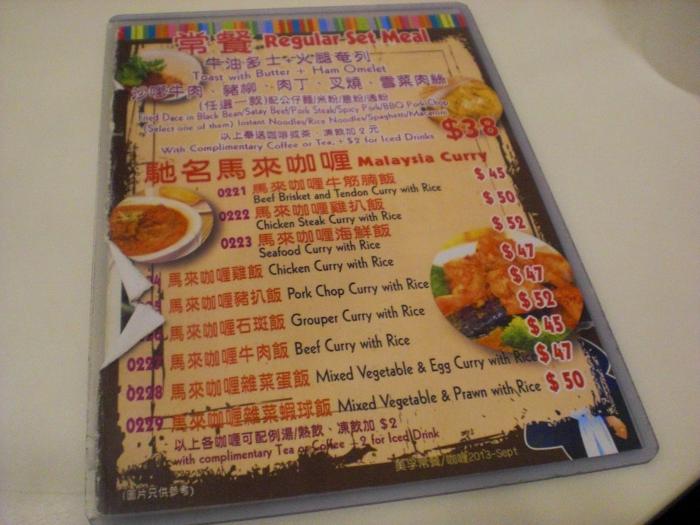 常餐 Regular Set Meal
牛油多士+火腿奄列
Toast with Butter + Ham Omelet
沙嗲牛肉、豬柳、肉丁、叉燒、雪菜肉絲
(任選一款)配公仔麵/米粉/意粉/通粉
Fried Dace in Black Bean/Satay Beef/Pork Steak/Spicy Pork/BBQ Pork Chop
(Select one of them) Instant Noodles/Rice Noodles/Spaghetti/Macaroni
以上奉送咖啡或茶、凍飲加2元
With Complimentary Coffee or Tea, + $2 for Iced Drinks $38
馳名馬來咖喱 Malaysia Curry
0221 馬來咖喱牛筋腩飯 $45
Beef Brisket and Tendon Curry with Rice
0222 馬來咖喱雞扒飯 $50
Chicken Steak Curry with Rice
0223 馬來咖喱海鮮飯 $52
Seafood Curry with Rice
4 馬來咖喱雞飯 Chicken Curry with Rice $47
馬來咖喱豬扒飯 Pork Chop Curry with Rice $47
馬來咖喱石斑飯 Grouper Curry with Rice $52
0227 馬來咖喱牛肉飯 Beef Curry with Rice $45
0228 馬來咖喱雜菜蛋飯 Mixed Vegetable & Egg Curry with Rice $47
0229 馬來咖喱雜菜蝦球飯 Mixed Vegetable & Prawn with Rice $50
以上各咖喱可配例湯/熱飲、凍飲加 $2
with complimentary Tea or Coffee + 2 for Iced Drink
美孚常餐/咖喱2013-Sept
(圖片只供參考)